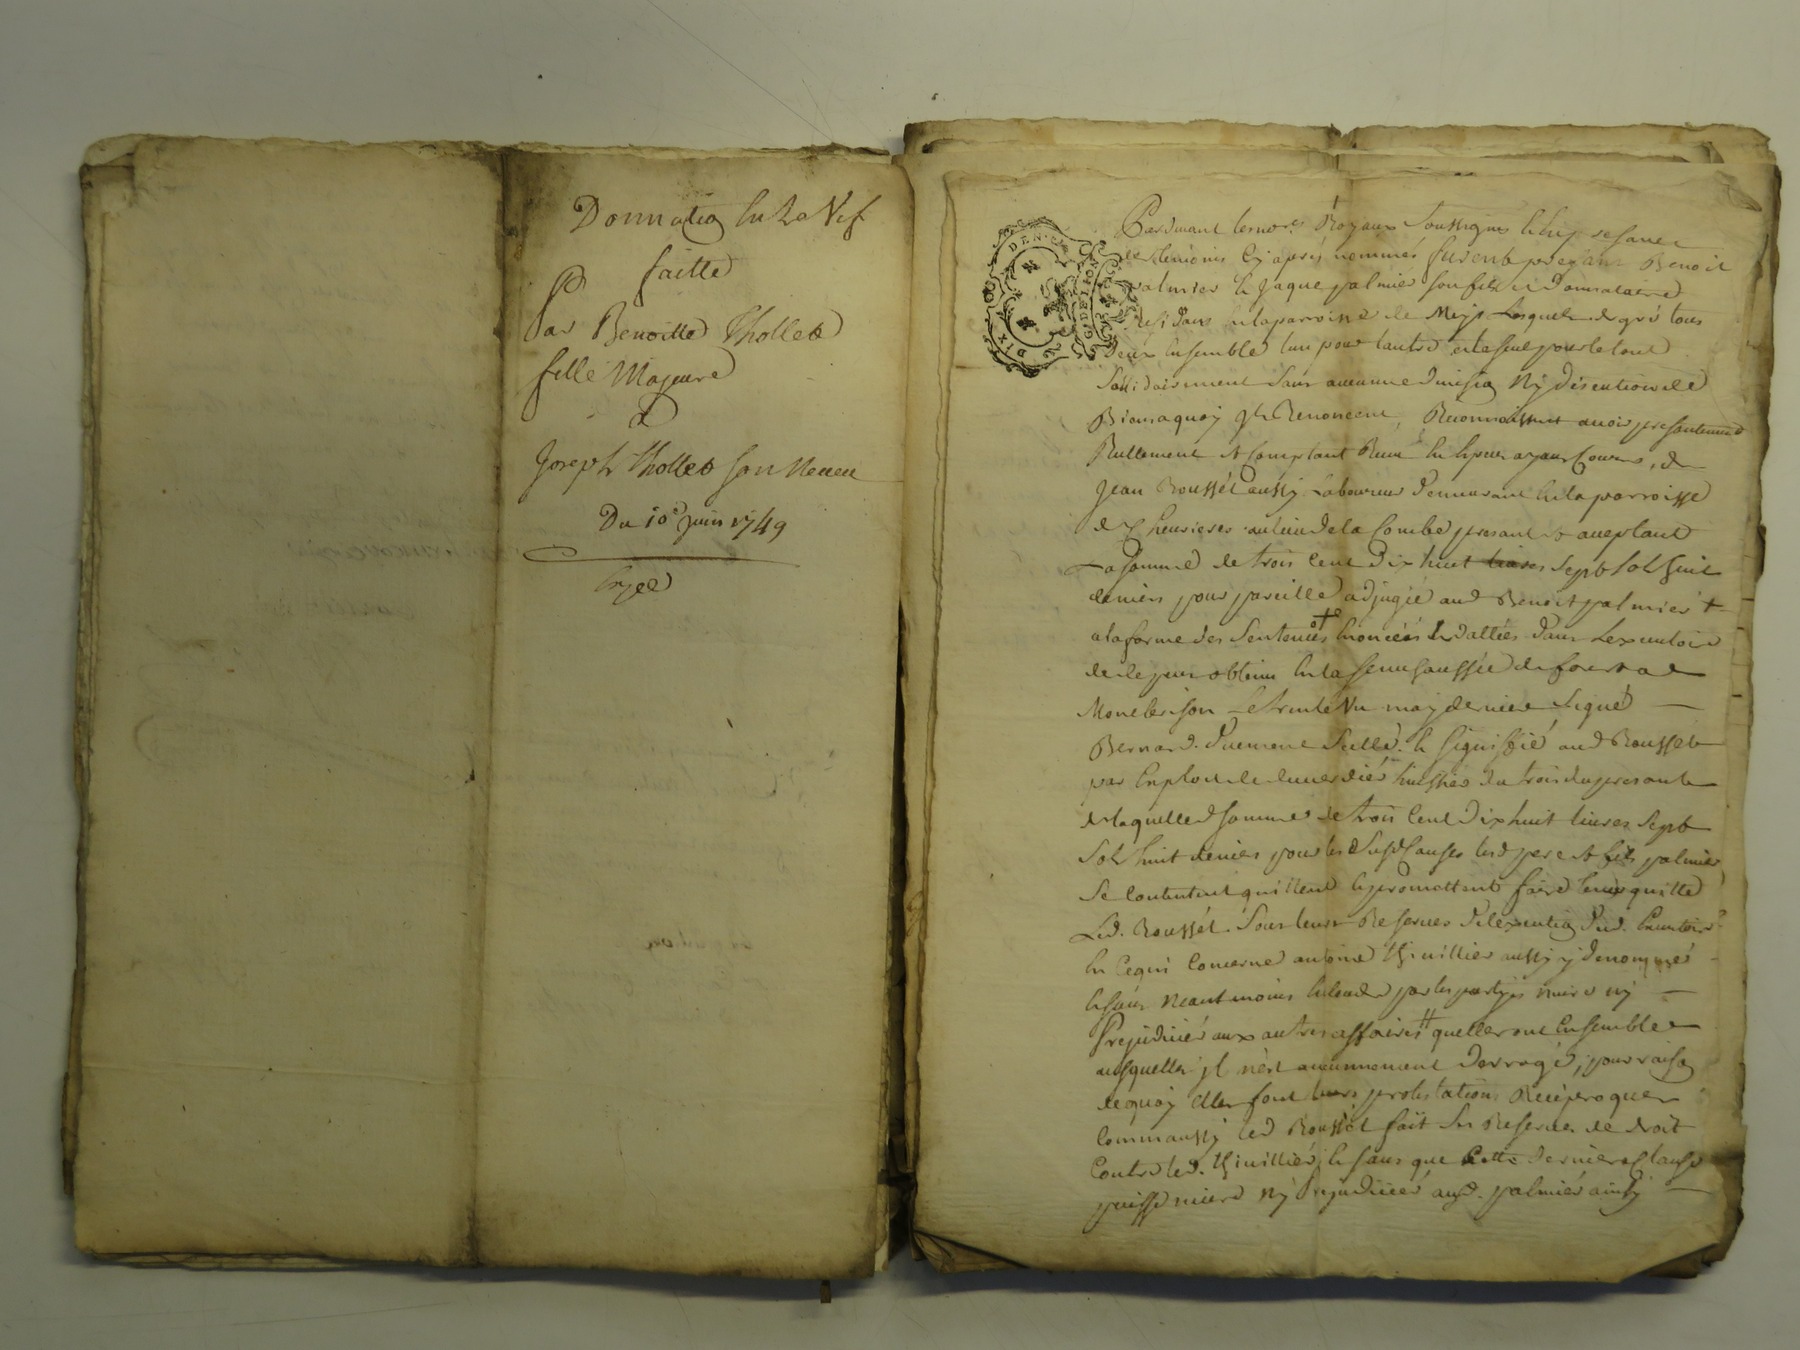 Donnation Entre Vif
faitte
Par Benoitte Thollet
fille Majeure
A
Joseph Thollet son Neveu
Du 10e juin 1749
Expee
Pardevant les nores Royaux soussignes
les temoins cy apres nommés furent presans Benoit
palmier & Jaque palmier son fils & donnataire
residans en la parroisse de lesquels de gré tous
deux ensemble l'un pour l'autre et le seul pour le tout
solidairement sans aucunne division ny discution de
Biens a quoy ils Renoncent, Reconnoissent avoir presentemt
Reellement & comptant Receu en Especes ayans Cours, de
Jean Roussét aussy Laboureur demeurant en la parroisse
de Chevrieres au lieu de la Combe presant & acceptant
La somme de trois cent dix huit livres sept sols huit
deniers pour pareille adjugée aud Benoit palmier +
a la forme des sentences énoncées & dattées dans Lexecutoire
de depens obtenu en la senechaussée de forest a
Montbrison Le trente Un may dernier signé
Bernard. Duement scellé. & signiffié aud Roussét
par Exploit de huissier du trois du presant
de laquelle somme de trois cent dix huit livres sept
sols huit deniers pour les susd Causes lesd pere & fils palmier
se contentent quittent & promettent faire tenir quitte
Led. Roussét. sous leurs Reserves d'execution dud. Executoire
en ce qui Concerne antoine thivillier aussy y denommé
sans neantmoins entendre par les partyes nuire ny
Prejudicier aux autres affaires # quelles ont Ensemble
ausquelles jl n'est aucunnement derrogé, pour raison
de quoy elles font leurs protestations Reciproques
Comm'aussy led Roussét fait ses Reserves de droit
Contre led. thivillier, & sans que cette derniere Clause
puisse nuire ny prejudicier aud. palmiér ainsy